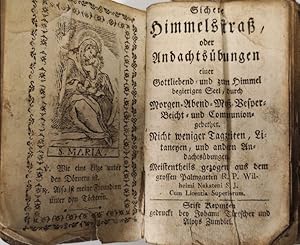 S. MARIA.
V. Wie eine Lilge unter
den Dörnern ist.
R. Also ist meine Freundinn
unter den Töchtern.
Sichere
Himmelstraß,
oder
Andachtsübungen
einer
Gottliebend- und zum Himmel
begierigen Seel, durch
Morgen-Abend-Meß-Vesper-
Beicht- und Communion-
gebether.
Nicht weniger Tagzeiten, Li-
taneyen, und andere An-
dachtsübungen.
Meistentheils gezogen aus dem
grossen Palmgarten R. P. Wil-
helmi Nakateni S. J.
Cum Licentia Superiorum.
Stift Kempten
gedruckt bey Johann
und
Aloys